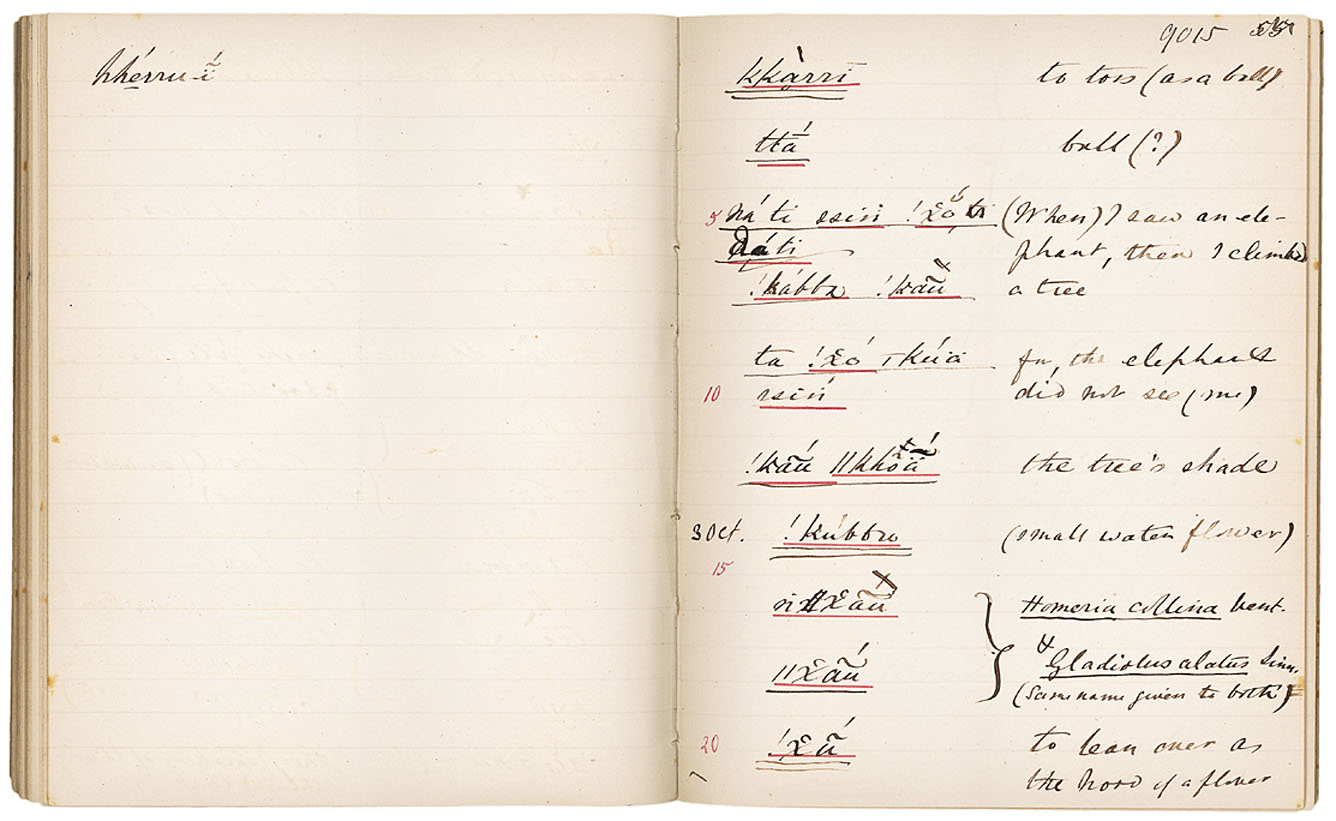 hhérru-ĩ
9015
kkàrri to toss (as a ball)
ttá ball (?)
5 ṅá ti ssiṅ !χó (When) I saw an ele-
ṅáti phant, then I climbed
!kábba !kãũ a tree
ta !χó kúä for, the elephant
10 ssiṅ did not see (me)
!kãũ ǁkhóä the tree's shade
3 Oct. !kúbbu (small water flower)
15
ǁχãũ Homeria collina Vent.
ǁχãũ & Gladiolus alatus Linn.
(Same name given to both)
20 !χã́ to lean over as
the head of a flower